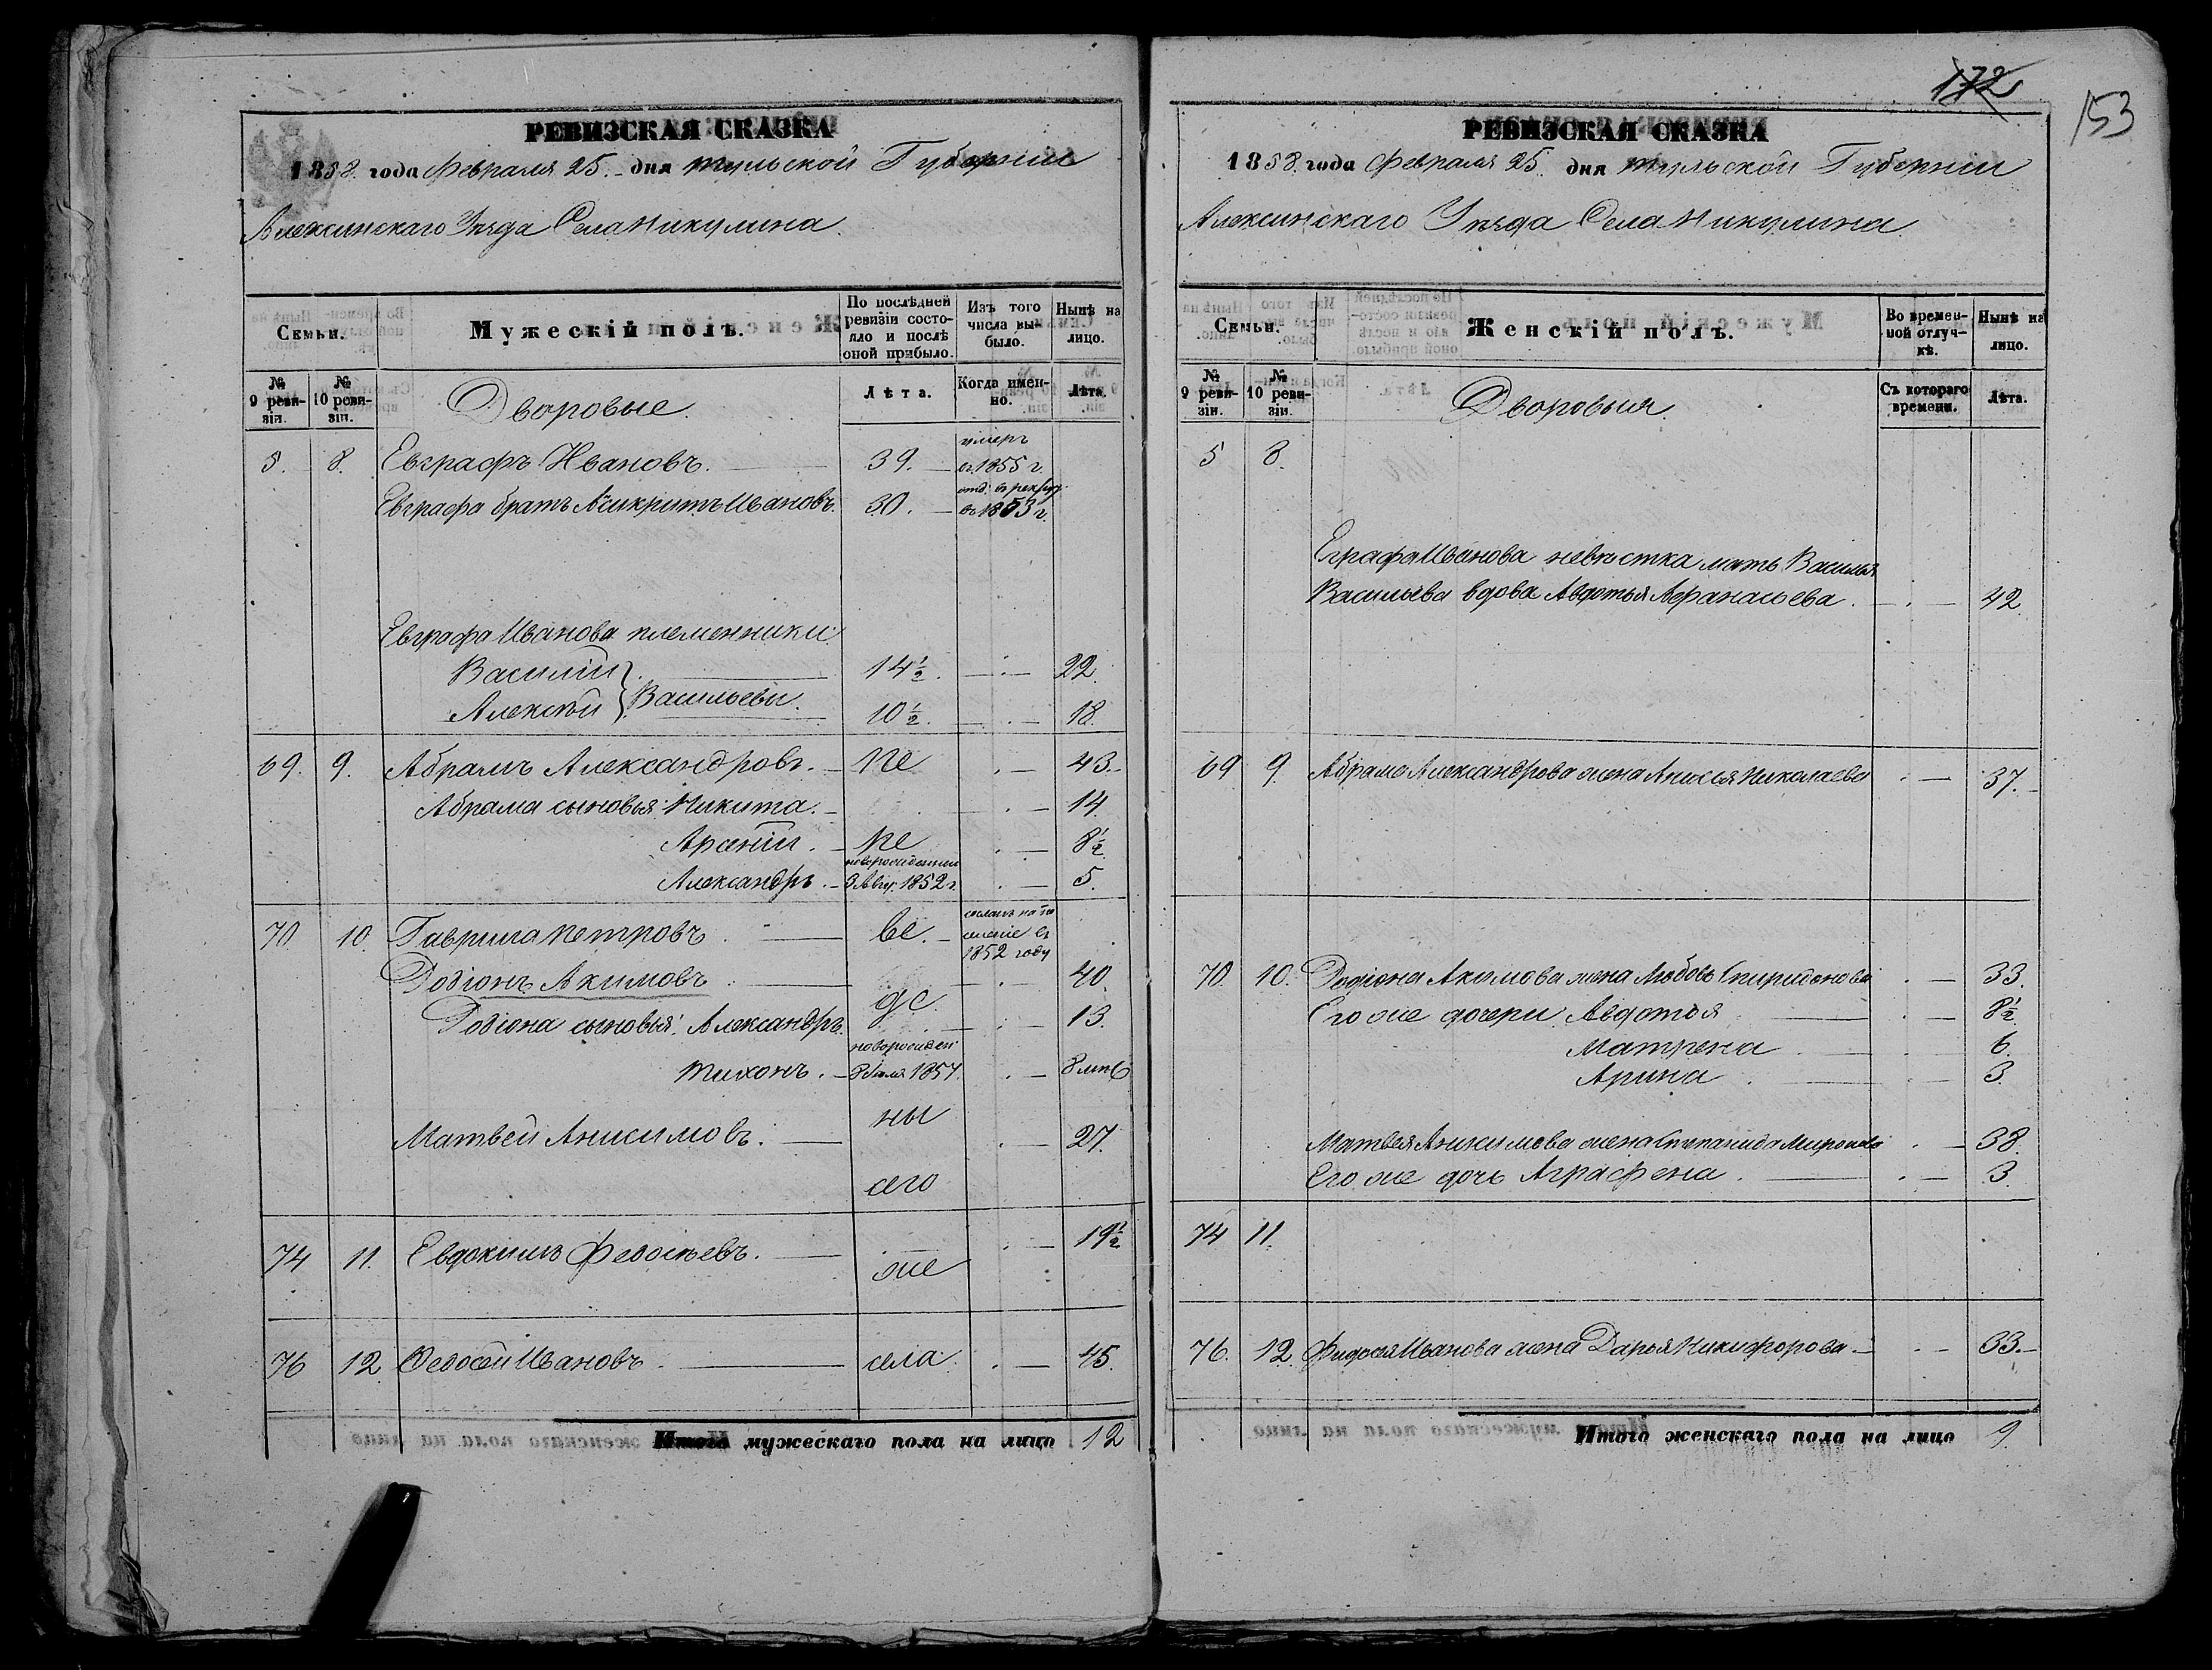 РЕВИЗСКАЯ СКАЗКА
1858. года Февраля 25. дня Тульской Губернии
Алексинскаго Уезда Села Никулина.
Семьи.
Мужескій полъ.
По послѣдней ревизіи состояло и послѣ оной прибыло.
Изъ того числа выбыло.
Нынѣ на лицо.
№ 9 ревизіи.
№ 10 ревизіи.
Дворовые.
Лѣта.
Когда именно.
Лѣта.
5. 8. Евграфъ Ивановъ. 39. умеръ въ 1855 г.
Евграфа братъ Ивановъ. 30. отд: въ рекруты въ 1853 г.
Евграфа Иванова племенники
Василій 14½. 22.
Алексѣй } Васильевы. 10½. 18.
69. 9. Абрамъ Александровъ. Пе 43.
Абрама сыновья: Никита. 14.
Арсеній. ре 8½
Александръ. новорожденный 1852 г. 5.
70. 10. Гаврила Петровъ. ве. сосланъ на поселеніе въ 1852 году
Родіонъ Акимовъ. 40.
де
Родіона сыновья: Александръ. 13.
Тихонъ. новорожден 1857. 8 м
ны
Матвей Анисимовъ. 27.
сего
74 11. Евдокимъ Федосѣевъ. 19½
же
76 12. Федосѣй Ивановъ. села. 45.
Итого мужескаго пола на лицо 12
172
153
РЕВИЗСКАЯ СКАЗКА
1858. года Февраля 25. дня Тульской Губернии
Алексинскаго Уезда Села Никулина.
Семьи.
Женскій полъ.
Во временной отлучкѣ.
Нынѣ на лицо.
№ 9 ревизіи.
№ 10 ревизіи.
Дворовыя
Съ котораго времени.
Лѣта.
5 8.
Еграфа Иванова невѣстка мать Василья
Васильева вдова Авдотья Афанасьева. 42.
69 9. Абрама Александрова жена Анисья Николаева 37.
70. 10. Родіона Акимова жена Любовь Спиридонова 33.
Его же дочери Авдотья 8½
Матрена 6.
Арина 3.
Матвея Анисимова жена Степанида Миронова 38.
Его же дочь Аграфена. 3.
74 11.
76. 12. Федосея Иванова жена Дарья Никифорова 33.
Итого женскаго пола на лицо 9.